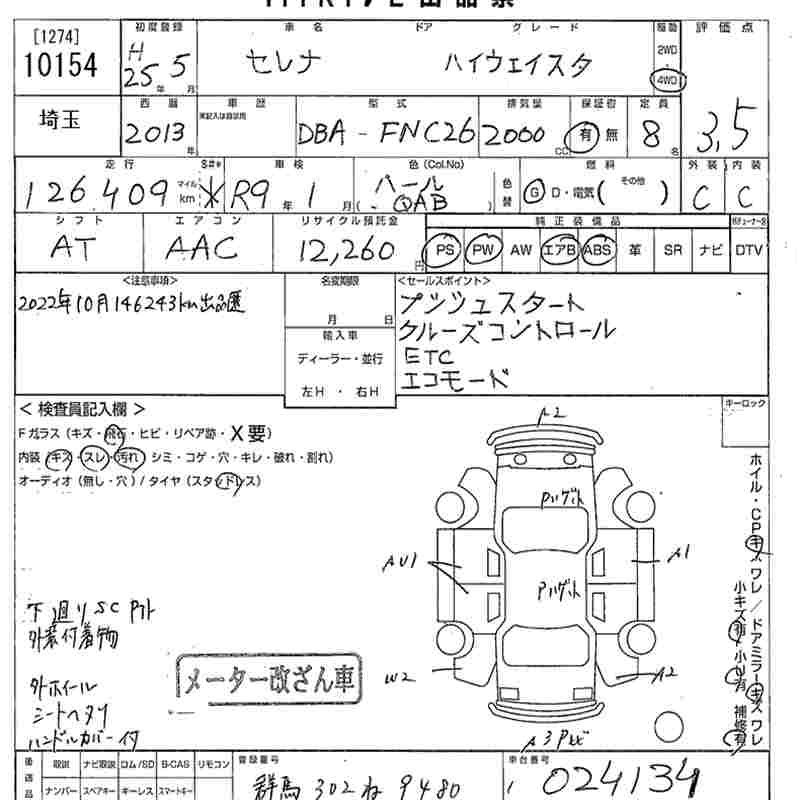 [1274]
10154
初度登録
H
25年 5月
車名
セレナ
ドア
グレード
ハイウェイスタ
駆動
2WD
・
4WD
評価点
3,5
埼玉
西暦
2013年
車歴
未記入は自家用
型式
DBA - FNC26
排気量
2000 CC
保証書
有 無
定員
8名
走行
126,409 マイル km
S#*
車検
R9年 1月
色(Col.No)
パール
(QAB)
色替
燃料
G D・電気(その他 )
外装
C
内装
C
シフト
AT
エアコン
AAC
リサイクル預託金
12,260円
純正装備品
PS PW AW エアB ABS 革 SR ナビ DTV
<注意事項>
2022年10月146243km出品歴
名変期限
月 日
輸入車
ディーラー・並行
左H ・ 右H
<セールスポイント>
プッシュスタート
クルーズコントロール
ETC
エコモード
キーロック
< 検査員記入欄 >
Fガラス(キズ・飛石・ヒビ・リペア跡・X要)
内装(キズ・スレ・汚れ・シミ・コゲ・穴・キレ・破れ・割れ)
オーディオ(無し・穴)/タイヤ(スタッドレス)
A2
Pハゲ
AU1
A1
Pハゲ
W2
A2
A3Pヒビ
ホイル・CPキズワレ/ドアミラーキズワレ
小キズ有 小U有 補修有
下廻りSC
外装付着物
外ホイール
シートヘタリ
ハンドルカバー付
メーター改ざん車
後送品
取説 ナビ取説 ロム/SD B-CAS リモコン
ナンバー スペアキー キーレス スマートキー
登録番号
群馬 302 ね 9480
車台番号
024134